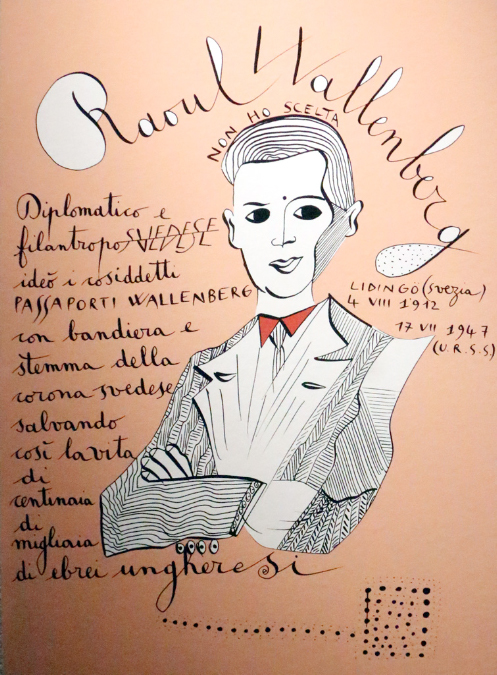 Raoul Wallenberg
NON HO SCELTA
Diplomatico e
filantropo SVEDESE
ideò i cosiddetti
PASSAPORTI WALLENBERG
con bandiera e
stemma della
corona svedese
salvando
così la vita
di
centinaia
di
migliaia
di ebrei ungheresi
LIDINGÖ (Svezia)
4 VIII 1912
17 VII 1947
(U.R.S.S)